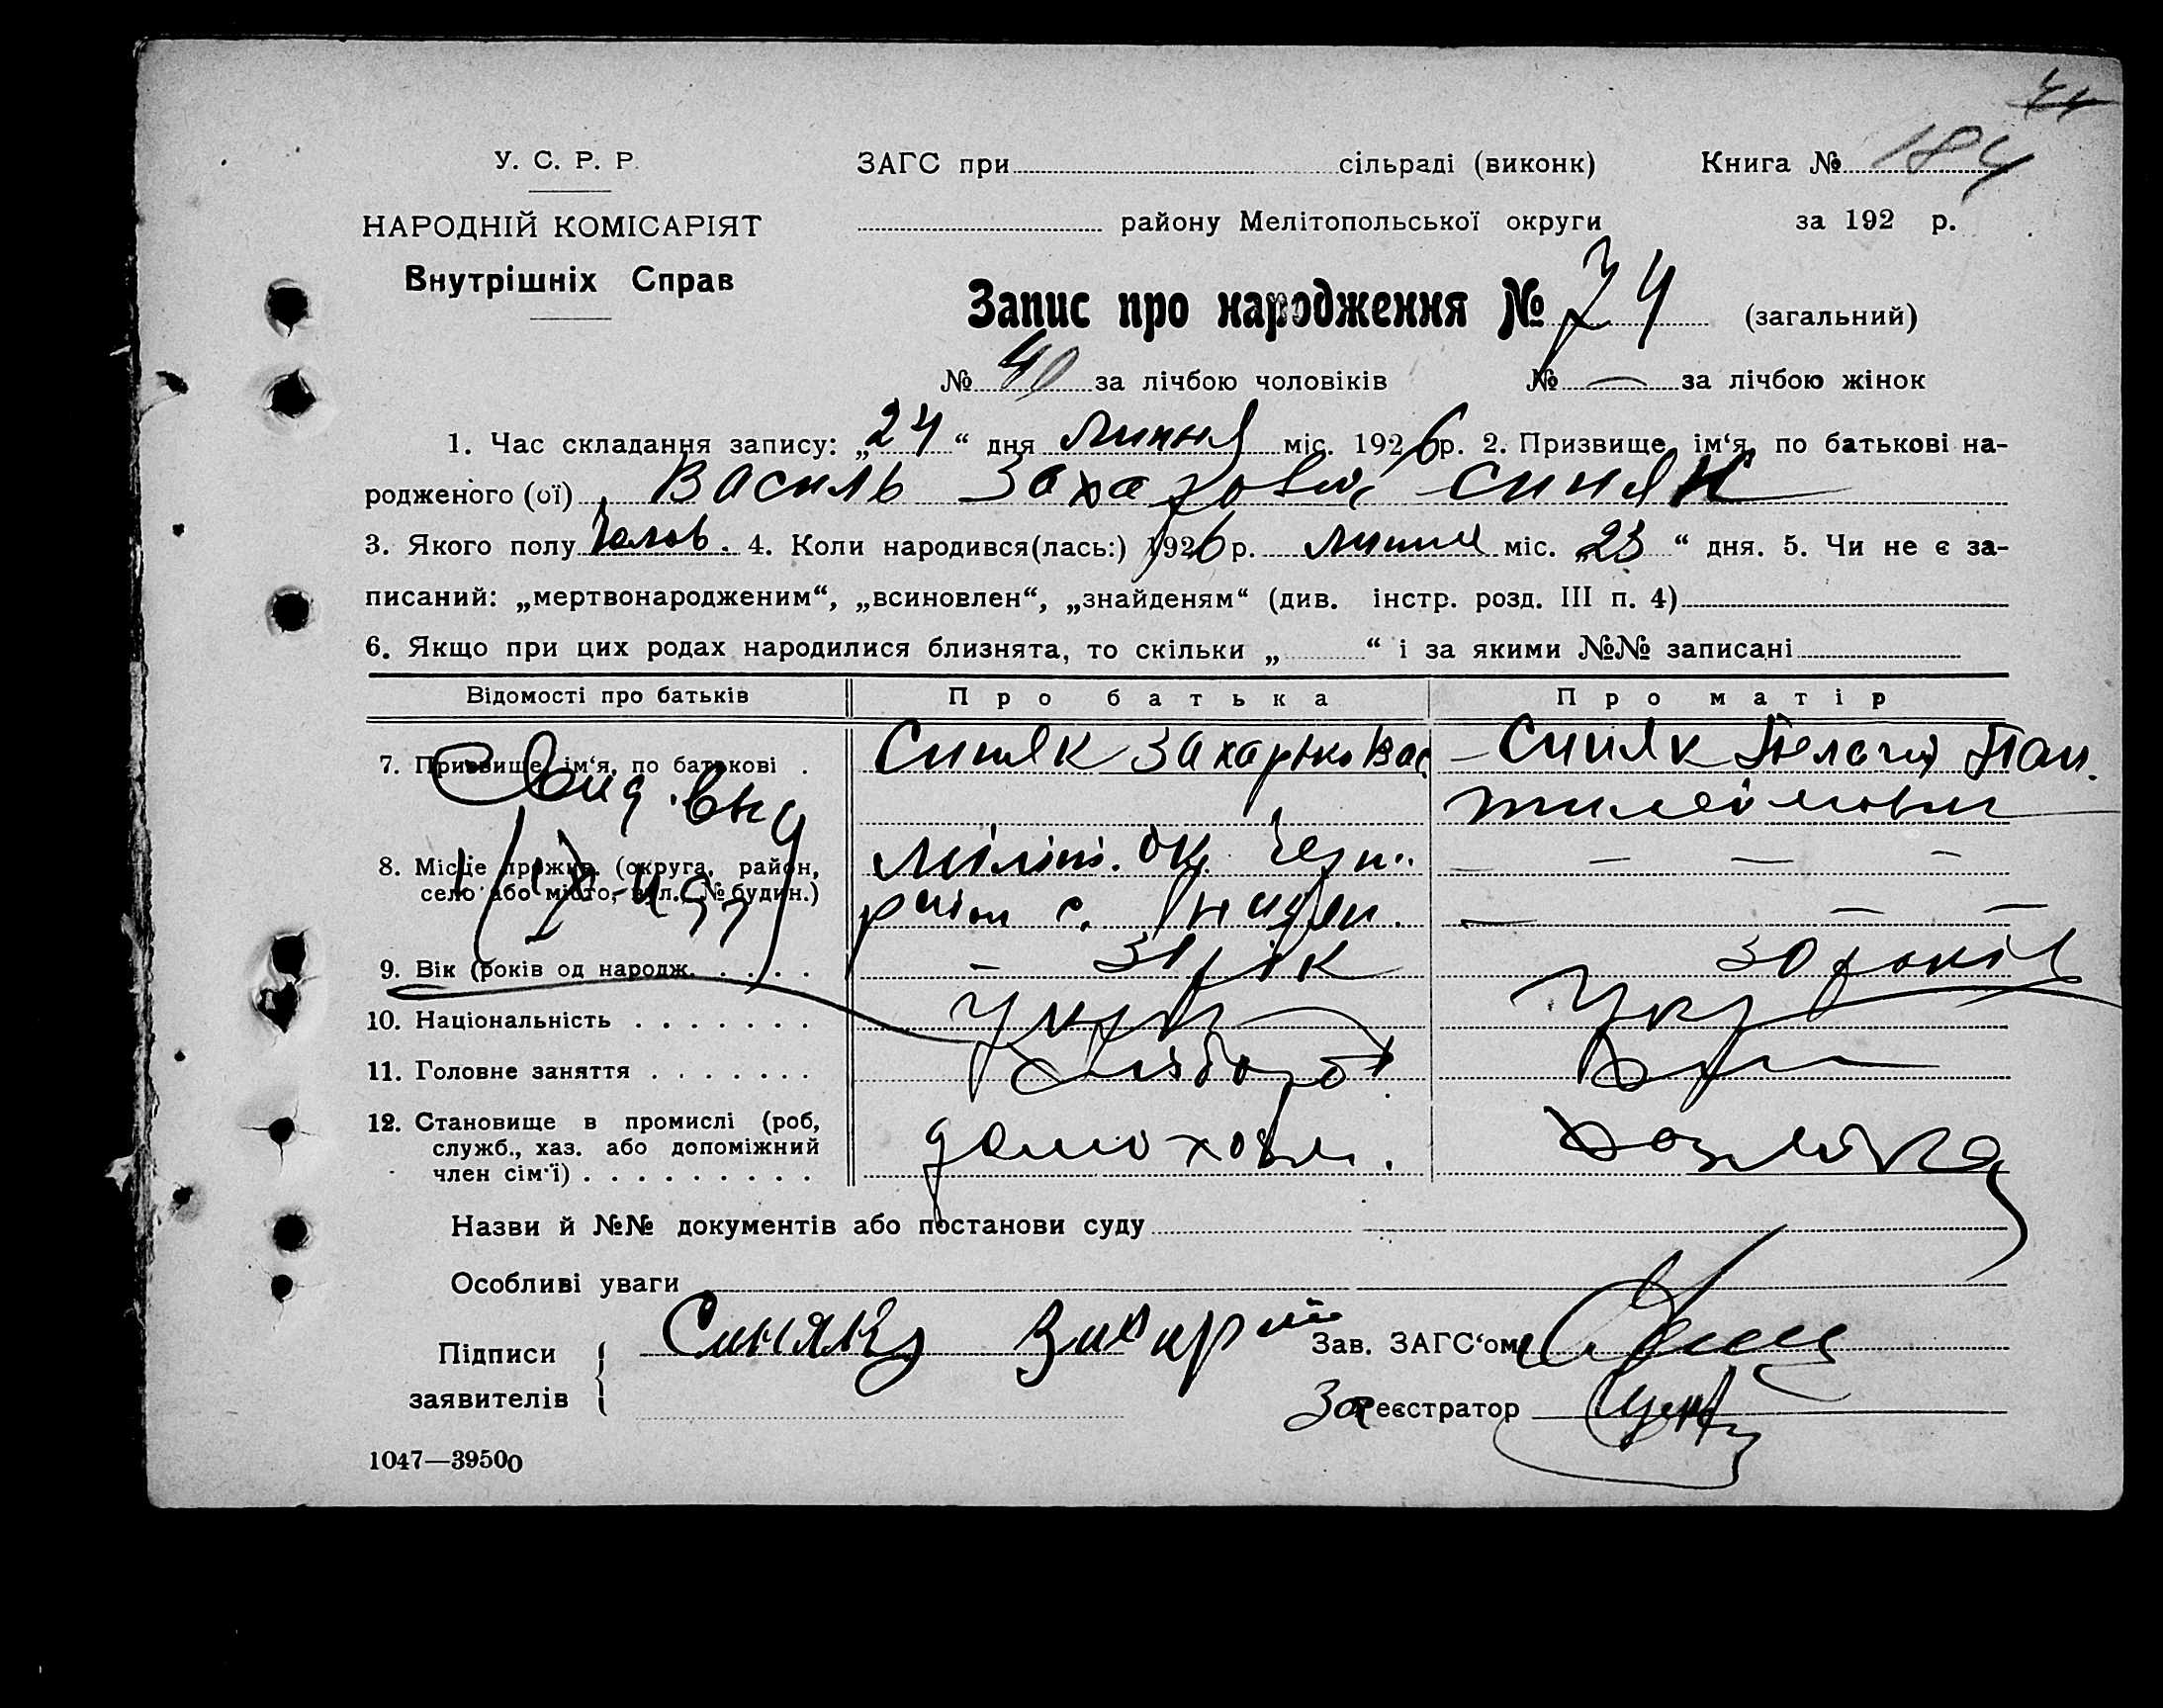 У. С. Р. Р.
ЗАГС при сільраді (виконк)
Книга № 184
НАРОДНІЙ КОМІСАРІЯТ
району Мелітопольської округи
за 192 р.
Внутрішніх Справ
Запис про народження № 74 (загальний)
№ 40 за лічбою чоловіків № — за лічбою жінок
1. Час складання запису: „24“ дня липня міс. 1926 р. 2. Призвище, ім‘я, по батькові на-
родженого (ої) Василь Захарович Синяк
3. Якого полу Чолов. 4. Коли народився(лась:) 1926 р. липня міс. „23“ дня. 5. Чи не є за-
писаний: „мертвонародженим“, „всиновлен“, „знайденям“ (див. інстр. розд. III п. 4)
6. Якщо при цих родах народилися близнята, то скільки „ “ і за якими №№ записані
Відомості про батьків Про батька Про матір
7. Призвище, ім‘я, по батькові . Синяк Захарько Вас Синяк Пелагия Пан.
тилеймовна
8. Місце прожив. (округа, район, Меліт. Окр.
село або місто, вул. № будин.) район с.
9. Вік (років од народж. . . . . — 31 рік 30 років
10. Національність . . . . . . . Укр
11. Головне заняття . . . . . . . Хлібороб
12. Становище в промислі (роб,
служб., хаз. або допоміжний
член сім‘ї) . . . . . . . . . домохозя.
Назви й №№ документів або постанови суду
Особливі уваги
Підписи
заявителів
Синяк Захар
Зав. ЗАГС‘ом
Реєстратор
1047—39500